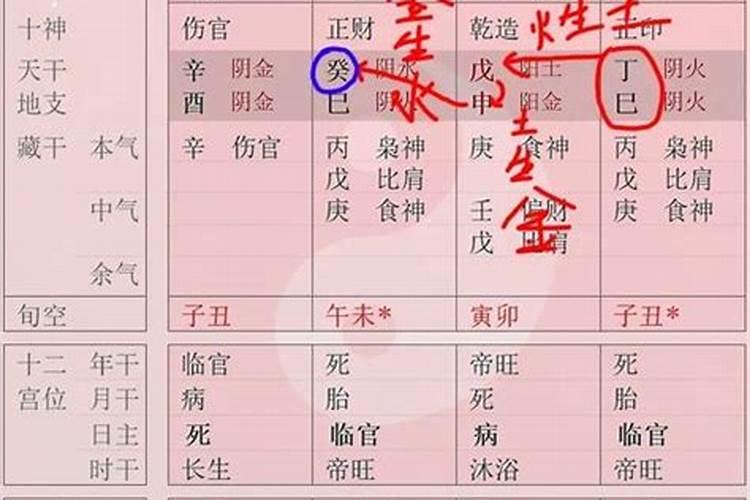 十神 伤官 正财 乾造 正印
天干 辛 阴金 癸 阴水 戊 阳土 丁 阴火
地支 酉 阴金 巳 阴火 申 阳金 巳 阴火
藏干 本气 辛 伤官 丙 枭神 庚 食神 丙 枭神
戊 比肩 戊 比肩
中气 庚 食神 壬 偏财 庚 食神
戊 比肩
余气
旬空 子丑 午未* 寅卯 子丑*
十二 年干 临官 死 帝旺 死
宫位 月干 病 胎 死 胎
日主 死 临官 病 临官
时干 长生 帝旺 沐浴 帝旺
金生水
火生土
土生金